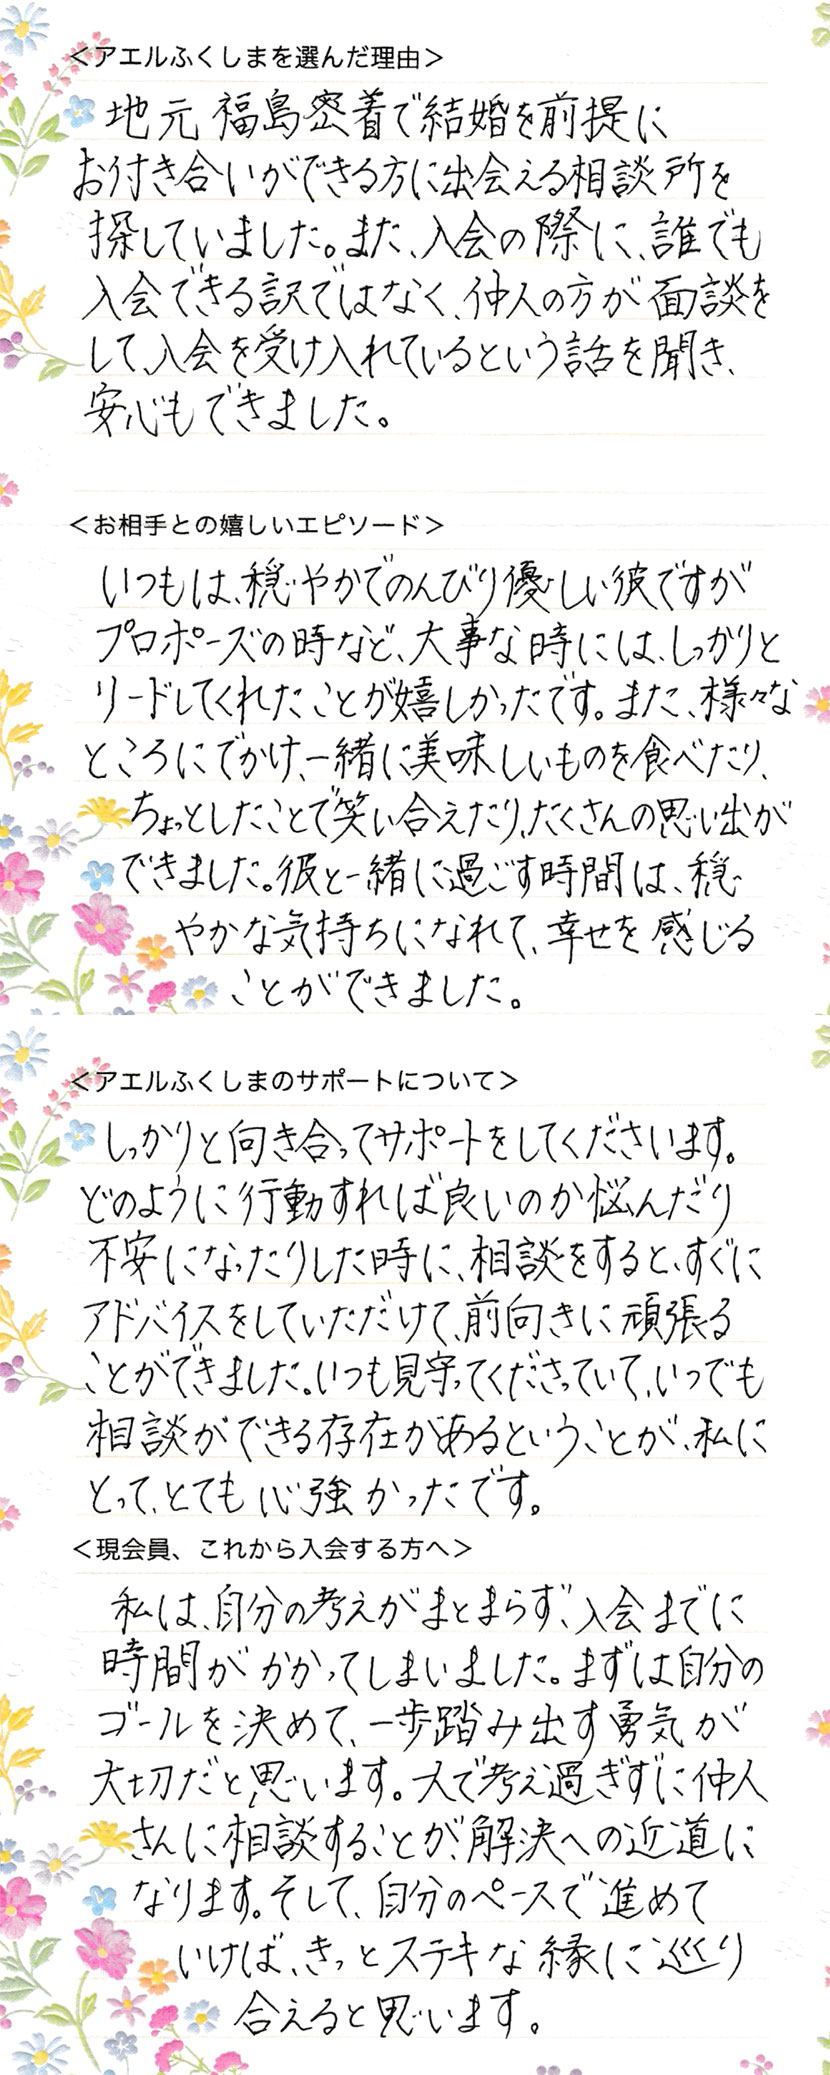 ＜アエルふくしまを選んだ理由＞
地元福島密着で結婚を前提に
お付き合いができる方に出会える相談所を
探していました。また、入会の際に、誰でも
入会できる訳ではなく、仲人の方が面談を
して、入会を受け入れているという話を聞き、
安心もできました。
＜お相手との嬉しいエピソード＞
いつもは、穏やかでのんびり優しい彼ですが
プロポーズの時など、大事な時には、しっかりと
リードしてくれたことが嬉しかったです。また、様々な
ところにでかけ、一緒に美味しいものを食べたり、
ちょっとしたことで笑い合えたり、たくさんの思い出が
できました。彼と一緒に過ごす時間は、穏
やかな気持ちになれて、幸せを感じる
ことができました。
＜アエルふくしまのサポートについて＞
しっかりと向き合ってサポートをしてくださいます。
どのように行動すれば良いのか悩んだり
不安になったりした時に、相談をすると、すぐに
アドバイスをしていただけて、前向きに頑張る
ことができました。いつも見守ってくださっていて、いつでも
相談ができる存在があるということが、私に
とって、とても心強かったです。
＜現会員、これから入会する方へ＞
私は、自分の考えがまとまらず、入会までに
時間がかかってしまいました。まずは自分の
ゴールを決めて、一歩踏み出す勇気が
大切だと思います。一人で考え過ぎずに仲人
さんに相談することが、解決への近道に
なります。そして、自分のペースで進めて
いけば、きっとステキな縁に巡り
合えると思います。